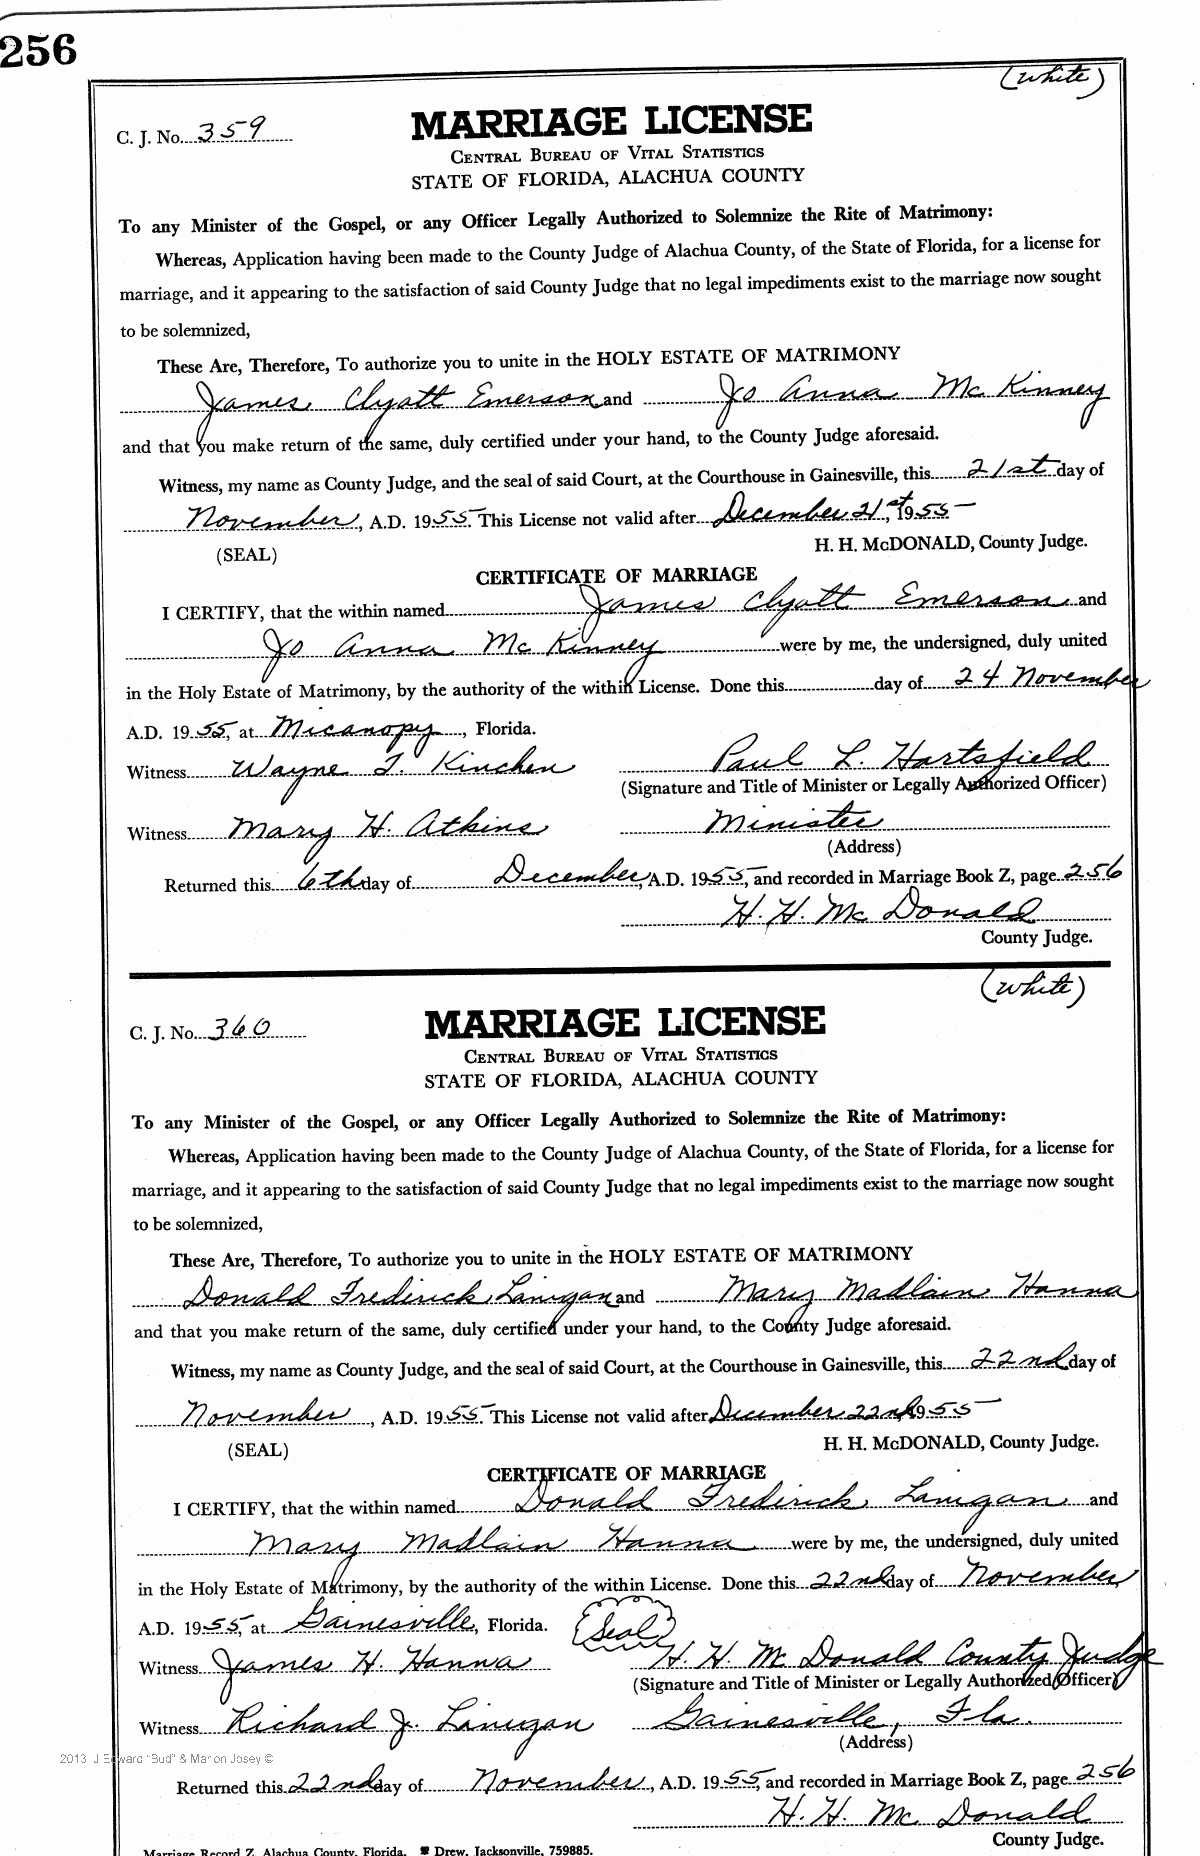 256
(White)
C. J. No. 359
MARRIAGE LICENSE
CENTRAL BUREAU OF VITAL STATISTICS
STATE OF FLORIDA, ALACHUA COUNTY
To any Minister of the Gospel, or any Officer Legally Authorized to Solemnize the Rite of Matrimony:
Whereas, Application having been made to the County Judge of Alachua County, of the State of Florida, for a license for
marriage, and it appearing to the satisfaction of said County Judge that no legal impediments exist to the marriage now sought
to be solemnized,
These Are, Therefore, To authorize you to unite in the HOLY ESTATE OF MATRIMONY
James Clyatt Emerson and Jo Anna McKinney
and that you make return of the same, duly certified under your hand, to the County Judge aforesaid.
Witness, my name as County Judge, and the seal of said Court, at the Courthouse in Gainesville, this 21st day of
November, A.D. 1955. This License not valid after December 21st, 1955
(SEAL) H. H. McDONALD, County Judge.
CERTIFICATE OF MARRIAGE
I CERTIFY, that the within named James Clyatt Emerson and
Jo Anna McKinney were by me, the undersigned, duly united
in the Holy Estate of Matrimony, by the authority of the within License. Done this day of 24 November
A.D. 1955, at Micanopy, Florida.
Witness Wayne T. Kinchen Paul L. Hartsfield
(Signature and Title of Minister or Legally Authorized Officer)
Witness Mary H. Atkins Minister
(Address)
Returned this 6th day of December, A.D. 1955, and recorded in Marriage Book Z, page 256
H. H. McDonald
County Judge.
(White)
C. J. No. 360
MARRIAGE LICENSE
CENTRAL BUREAU OF VITAL STATISTICS
STATE OF FLORIDA, ALACHUA COUNTY
To any Minister of the Gospel, or any Officer Legally Authorized to Solemnize the Rite of Matrimony:
Whereas, Application having been made to the County Judge of Alachua County, of the State of Florida, for a license for
marriage, and it appearing to the satisfaction of said County Judge that no legal impediments exist to the marriage now sought
to be solemnized,
These Are, Therefore, To authorize you to unite in the HOLY ESTATE OF MATRIMONY
Donald Frederick Lanigan and Mary Madlain Hanna
and that you make return of the same, duly certified under your hand, to the County Judge aforesaid.
Witness, my name as County Judge, and the seal of said Court, at the Courthouse in Gainesville, this 22nd day of
November, A.D. 1955. This License not valid after December 22nd, 1955
(SEAL) H. H. McDONALD, County Judge.
CERTIFICATE OF MARRIAGE
I CERTIFY, that the within named Donald Frederick Lanigan and
Mary Madlain Hanna were by me, the undersigned, duly united
in the Holy Estate of Matrimony, by the authority of the within License. Done this 22nd day of November
A.D. 1955, at Gainesville, Florida. Seal
Witness James H. Hanna H. H. McDonald County Judge
(Signature and Title of Minister or Legally Authorized Officer)
Witness Richard J. Lanigan Gainesville, Fla.
(Address)
2013 J Edward "Bud" & Marion Josey ©
Returned this 22nd day of November, A.D. 1955, and recorded in Marriage Book Z, page 256
H. H. McDonald
County Judge.
Marriage Record Z, Alachua County, Florida. Drew, Jacksonville, 759885.